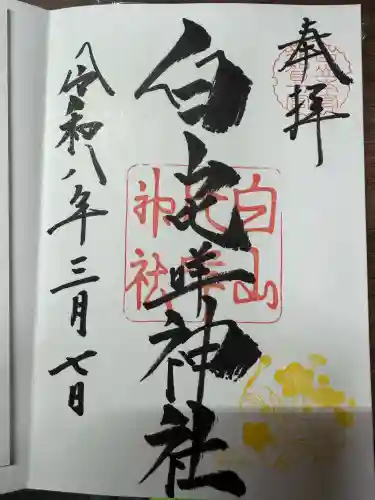 奉拝
白山比咩神社
白山
比咩
神社
令和八年三月七日